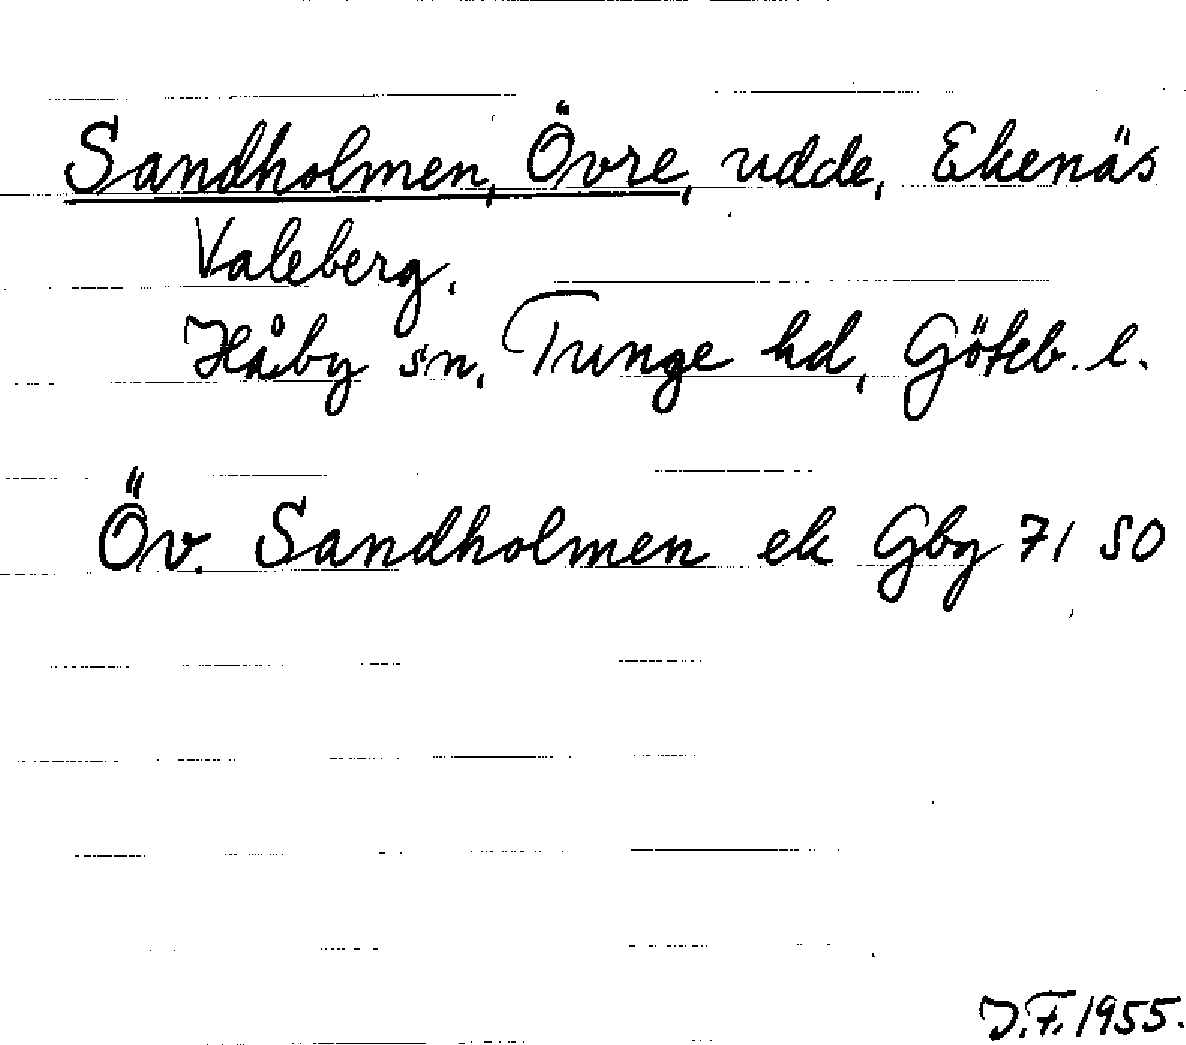 Sandholmen, Övre, udde, Ekenäs
Valeberg.
Håby sn, Tunge hd, Göteb. l.
Öv. Sandholmen ek Gby 71 SO
J.F. 1955.